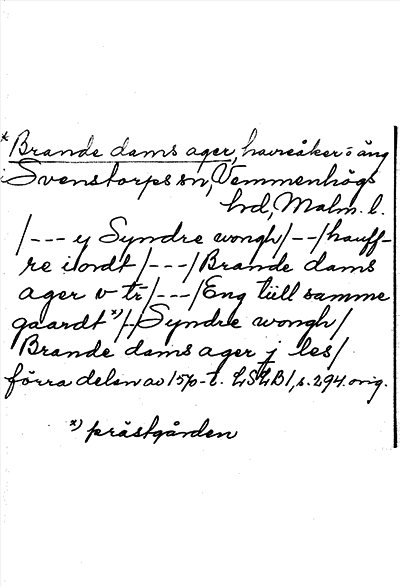 * Brande dams ager, havreåker o äng
i Svenstorps sn, Vemmenhögs
hd, Malm. l.
/--- y Syndre wongh/--/hauff-
re iordt/---/Brande dams
ager v tr/---/Eng tüll samme
gaardt x)/--Syndre wongh/
Brande dams ager j les/
förra delen av 1570-t. LSLB1, s. 294. orig.
x) prästgården